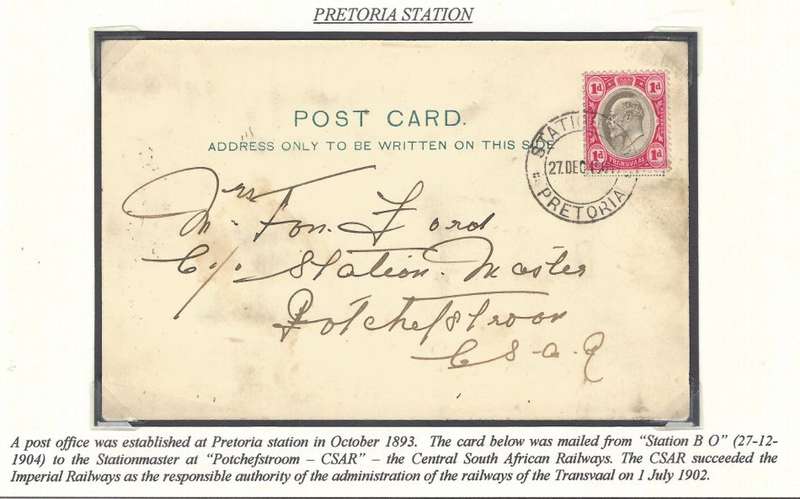 PRETORIA STATION
POST CARD.
ADDRESS ONLY TO BE WRITTEN ON THIS SIDE
1d 1d
TRANSVAAL
1d 1d
STATION
27 DEC
PRETORIA
Mrs Fon. Ford
C/o Station Master
Potchefstroom
C S. a. R
A post office was established at Pretoria station in October 1893. The card below was mailed from “Station B O” (27-12-
1904) to the Stationmaster at “Potchefstroom – CSAR” – the Central South African Railways. The CSAR succeeded the
Imperial Railways as the responsible authority of the administration of the railways of the Transvaal on 1 July 1902.